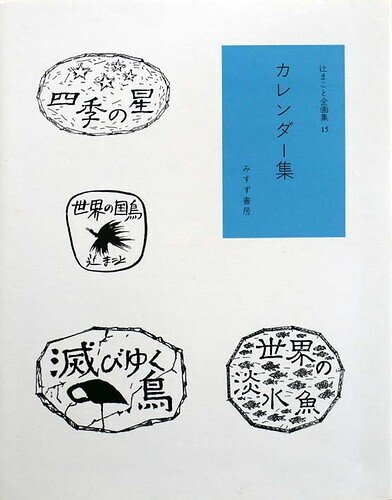 辻まこと全画集 15
カレンダー集
みすず書房
四季の星
世界の国鳥
辻まこと
滅びゆく
鳥
世界の
淡水魚